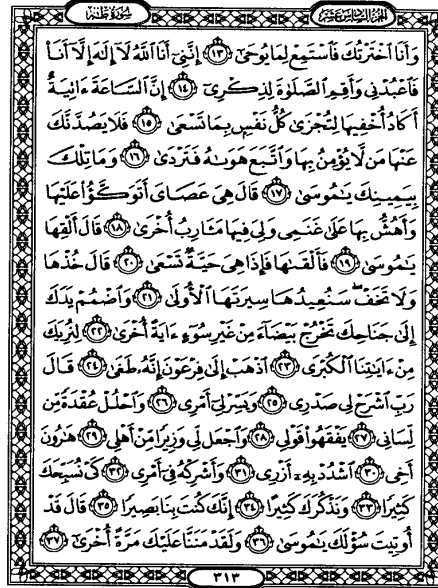 الجزء السادس عشر سورة طه
وَأَنَا ٱخْتَرْتُكَ فَٱسْتَمِعْ لِمَا يُوحَىٰٓ ﴿١٣﴾ إِنَّنِىٓ أَنَا ٱللَّهُ لَآ إِلَٰهَ إِلَّآ أَنَا۠
فَٱعْبُدْنِى وَأَقِمِ ٱلصَّلَوٰةَ لِذِكْرِىٓ ﴿١٤﴾ إِنَّ ٱلسَّاعَةَ ءَاتِيَةٌ
أَكَادُ أُخْفِيهَا لِتُجْزَىٰ كُلُّ نَفْسٍۭ بِمَا تَسْعَىٰ ﴿١٥﴾ فَلَا يَصُدَّنَّكَ
عَنْهَا مَن لَّا يُؤْمِنُ بِهَا وَٱتَّبَعَ هَوَىٰهُ فَتَرْدَىٰ ﴿١٦﴾ وَمَا تِلْكَ
بِيَمِينِكَ يَٰمُوسَىٰ ﴿١٧﴾ قَالَ هِىَ عَصَاىَ أَتَوَكَّؤُا۟ عَلَيْهَا
وَأَهُشُّ بِهَا عَلَىٰ غَنَمِى وَلِىَ فِيهَا مَـَٔارِبُ أُخْرَىٰ ﴿١٨﴾ قَالَ أَلْقِهَا
يَٰمُوسَىٰ ﴿١٩﴾ فَأَلْقَىٰهَا فَإِذَا هِىَ حَيَّةٌ تَسْعَىٰ ﴿٢٠﴾ قَالَ خُذْهَا
وَلَا تَخَفْ سَنُعِيدُهَا سِيرَتَهَا ٱلْأُولَىٰ ﴿٢١﴾ وَٱضْمُمْ يَدَكَ
إِلَىٰ جَنَاحِكَ تَخْرُجْ بَيْضَآءَ مِنْ غَيْرِ سُوٓءٍ ءَايَةً أُخْرَىٰ ﴿٢٢﴾ لِنُرِيَكَ
مِنْ ءَايَٰتِنَا ٱلْكُبْرَى ﴿٢٣﴾ ٱذْهَبْ إِلَىٰ فِرْعَوْنَ إِنَّهُۥ طَغَىٰ ﴿٢٤﴾ قَالَ
رَبِّ ٱشْرَحْ لِى صَدْرِى ﴿٢٥﴾ وَيَسِّرْ لِىٓ أَمْرِى ﴿٢٦﴾ وَٱحْلُلْ عُقْدَةً مِّن
لِّسَانِى ﴿٢٧﴾ يَفْقَهُوا۟ قَوْلِى ﴿٢٨﴾ وَٱجْعَل لِّى وَزِيرًا مِّنْ أَهْلِى ﴿٢٩﴾ هَٰرُونَ
أَخِى ﴿٣٠﴾ ٱشْدُدْ بِهِۦٓ أَزْرِى ﴿٣١﴾ وَأَشْرِكْهُ فِىٓ أَمْرِى ﴿٣٢﴾ كَىْ نُسَبِّحَكَ
كَثِيرًا ﴿٣٣﴾ وَنَذْكُرَكَ كَثِيرًا ﴿٣٤﴾ إِنَّكَ كُنتَ بِنَا بَصِيرًا ﴿٣٥﴾ قَالَ قَدْ
أُوتِيتَ سُؤْلَكَ يَٰمُوسَىٰ ﴿٣٦﴾ وَلَقَدْ مَنَنَّا عَلَيْكَ مَرَّةً أُخْرَىٰٓ ﴿٣٧﴾
٣١٣